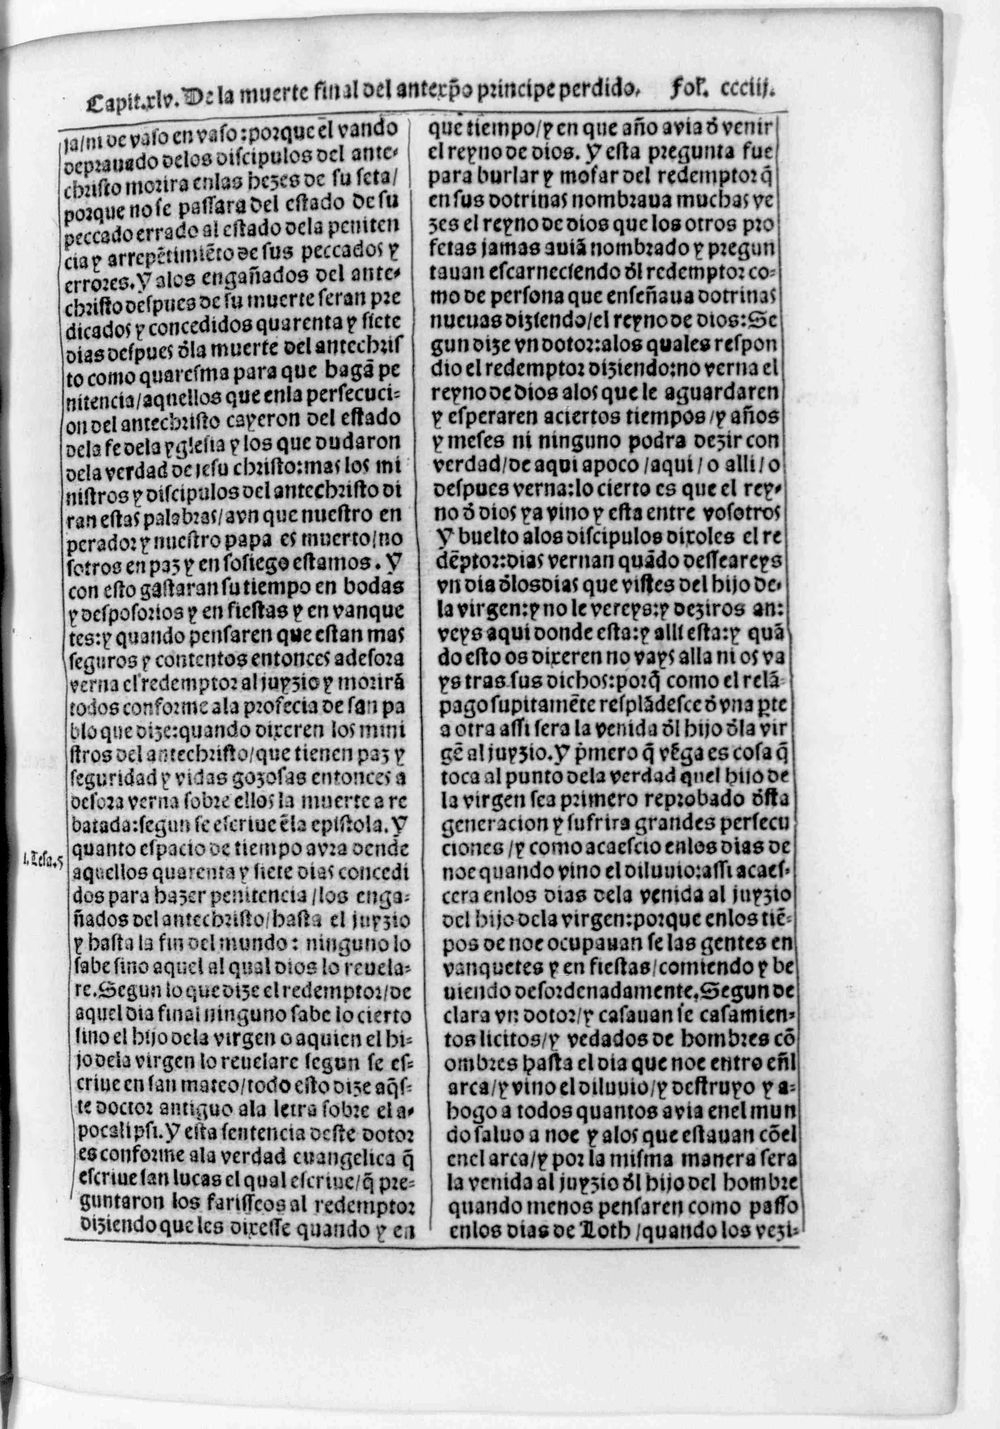 Capit.xlv. De la muerte final del antexp̃o principe perdido, fol. ccciij.
ja/ni de vaso en vaso:porque el vando
deprauado delos discipulos del ante-
christo morira enlas hezes de su seta/
porque no se passara del estado de su
peccado errado al estado dela peniten
cia y arrepẽtimiẽto de sus peccados y
errores. Y alos engañados del ante-
christo despues de su muerte seran pre
dicados y concedidos quarenta y siete
dias despues d̃la muerte del antechris
to como quaresma para que hagã pe
nitencia/aquellos que enla persecuci-
on del antechristo cayeron del estado
dela fe dela yglesia y los que dudaron
dela verdad de jesu christo:mas los mi
nistros y discipulos del antechristo di
ran estas palabras/avn que nuestro en
perador y nuestro papa es muerto/no
sotros en paz y en sosiego estamos. Y
con esto gastaran su tiempo en bodas
y desposorios y en fiestas y en vanque
tes:y quando pensaren que estan mas
seguros y contentos entonces a desora
verna el redemptor al juyzio y morirã
todos conforme ala profecia de san pa
blo que dize:quando dixeren los mini
stros del antechristo/que tienen paz y
seguridad y vidas gozosas entonces a
desora verna sobre ellos la muerte a re
batada:segun se escriue ẽla epistola. Y
quanto espacio de tiempo avra dende
1.Tesa.5
aquellos quarenta y siete dias concedi
dos para hazer penitencia/los enga-
ñados del antechristo/hasta el juyzio
y hasta la fin del mundo: ninguno lo
sabe sino aquel al qual dios lo reuela-
re. Segun lo que dize el redemptor/de
aquel dia final ninguno sabe lo cierto
sino el hijo dela virgen o aquien el hi-
jo dela virgen lo reuelare segun se es-
criue en san mateo/todo esto dize aq̃s-
te doctor antiguo ala letra sobre el a-
pocalipsi. Y esta sentencia deste dotor
es conforme ala verdad euangelica q̃
escriue san lucas el qual escriue/q̃ pre-
guntaron los fariseos al redemptor
diziendo que les dixesse quando y en
que tiempo/y en que año avia d̃ venir
el reyno de dios. Y esta pregunta fue
para burlar y mofar del redemptor q̃
en sus dotrinas nombraua muchas ve
zes el reyno de dios que los otros pro
fetas jamas aviã nombrado y pregun
tauan escarneciendo d̃l redemptor co-
mo de persona que enseñaua dotrinas
nueuas diziendo/el reyno de dios: Se
gun dize vn dotor:alos quales respon
dio el redemptor diziendo:no verna el
reyno de dios alos que le aguardaren
y esperaren aciertos tiempos/y años
y meses ni ninguno podra dezir con
verdad/de aqui apoco/aqui/o alli/o
despues verna:lo cierto es que el rey-
no d̃ dios ya vino y esta entre vosotros
Y buelto alos discipulos dixoles el re
dẽptor:dias vernan quãdo desseareys
vn dia d̃los dias que vistes del hijo de-
la virgen:y no le vereys:y deziros an:
veys aqui donde esta:y alli esta:y quã
do esto os dixeren no vays alla ni os va
ys tras sus dichos:porq̃ como el relã-
pago supitamẽte resplãdesce d̃ vna p̱te
a otra assi sera la venida d̃l hijo d̃la vir
gẽ al juyzio. Y p̃mero q̃ vẽga es cosa q̃
toca al punto dela verdad quel hijo de
la virgen sea primero reprobado d̃sta
generacion y sufrira grandes persecu
ciones/y como acaescio enlos dias de
noe quando vino el diluuio:assi acaes-
cera enlos dias dela venida al juyzio
del hijo dela virgen:porque enlos tiẽ-
pos de noe ocupauan se las gentes en
vanquetes y en fiestas/comiendo y be
uiendo desordenadamente. Segun de
clara vn dotor/y casauan se casamien-
tos licitos/y vedados de hombres cõ
ombres hasta el dia que noe entro eñl
arca/y vino el diluuio/y destruyo y a-
hogo a todos quantos avia enel mun
do saluo a noe y alos que estauan cõel
enel arca/y por la misma manera sera
la venida al juyzio d̃l hijo del hombre
quando menos pensaren como passo
enlos dias de Loth/quando los vezi-